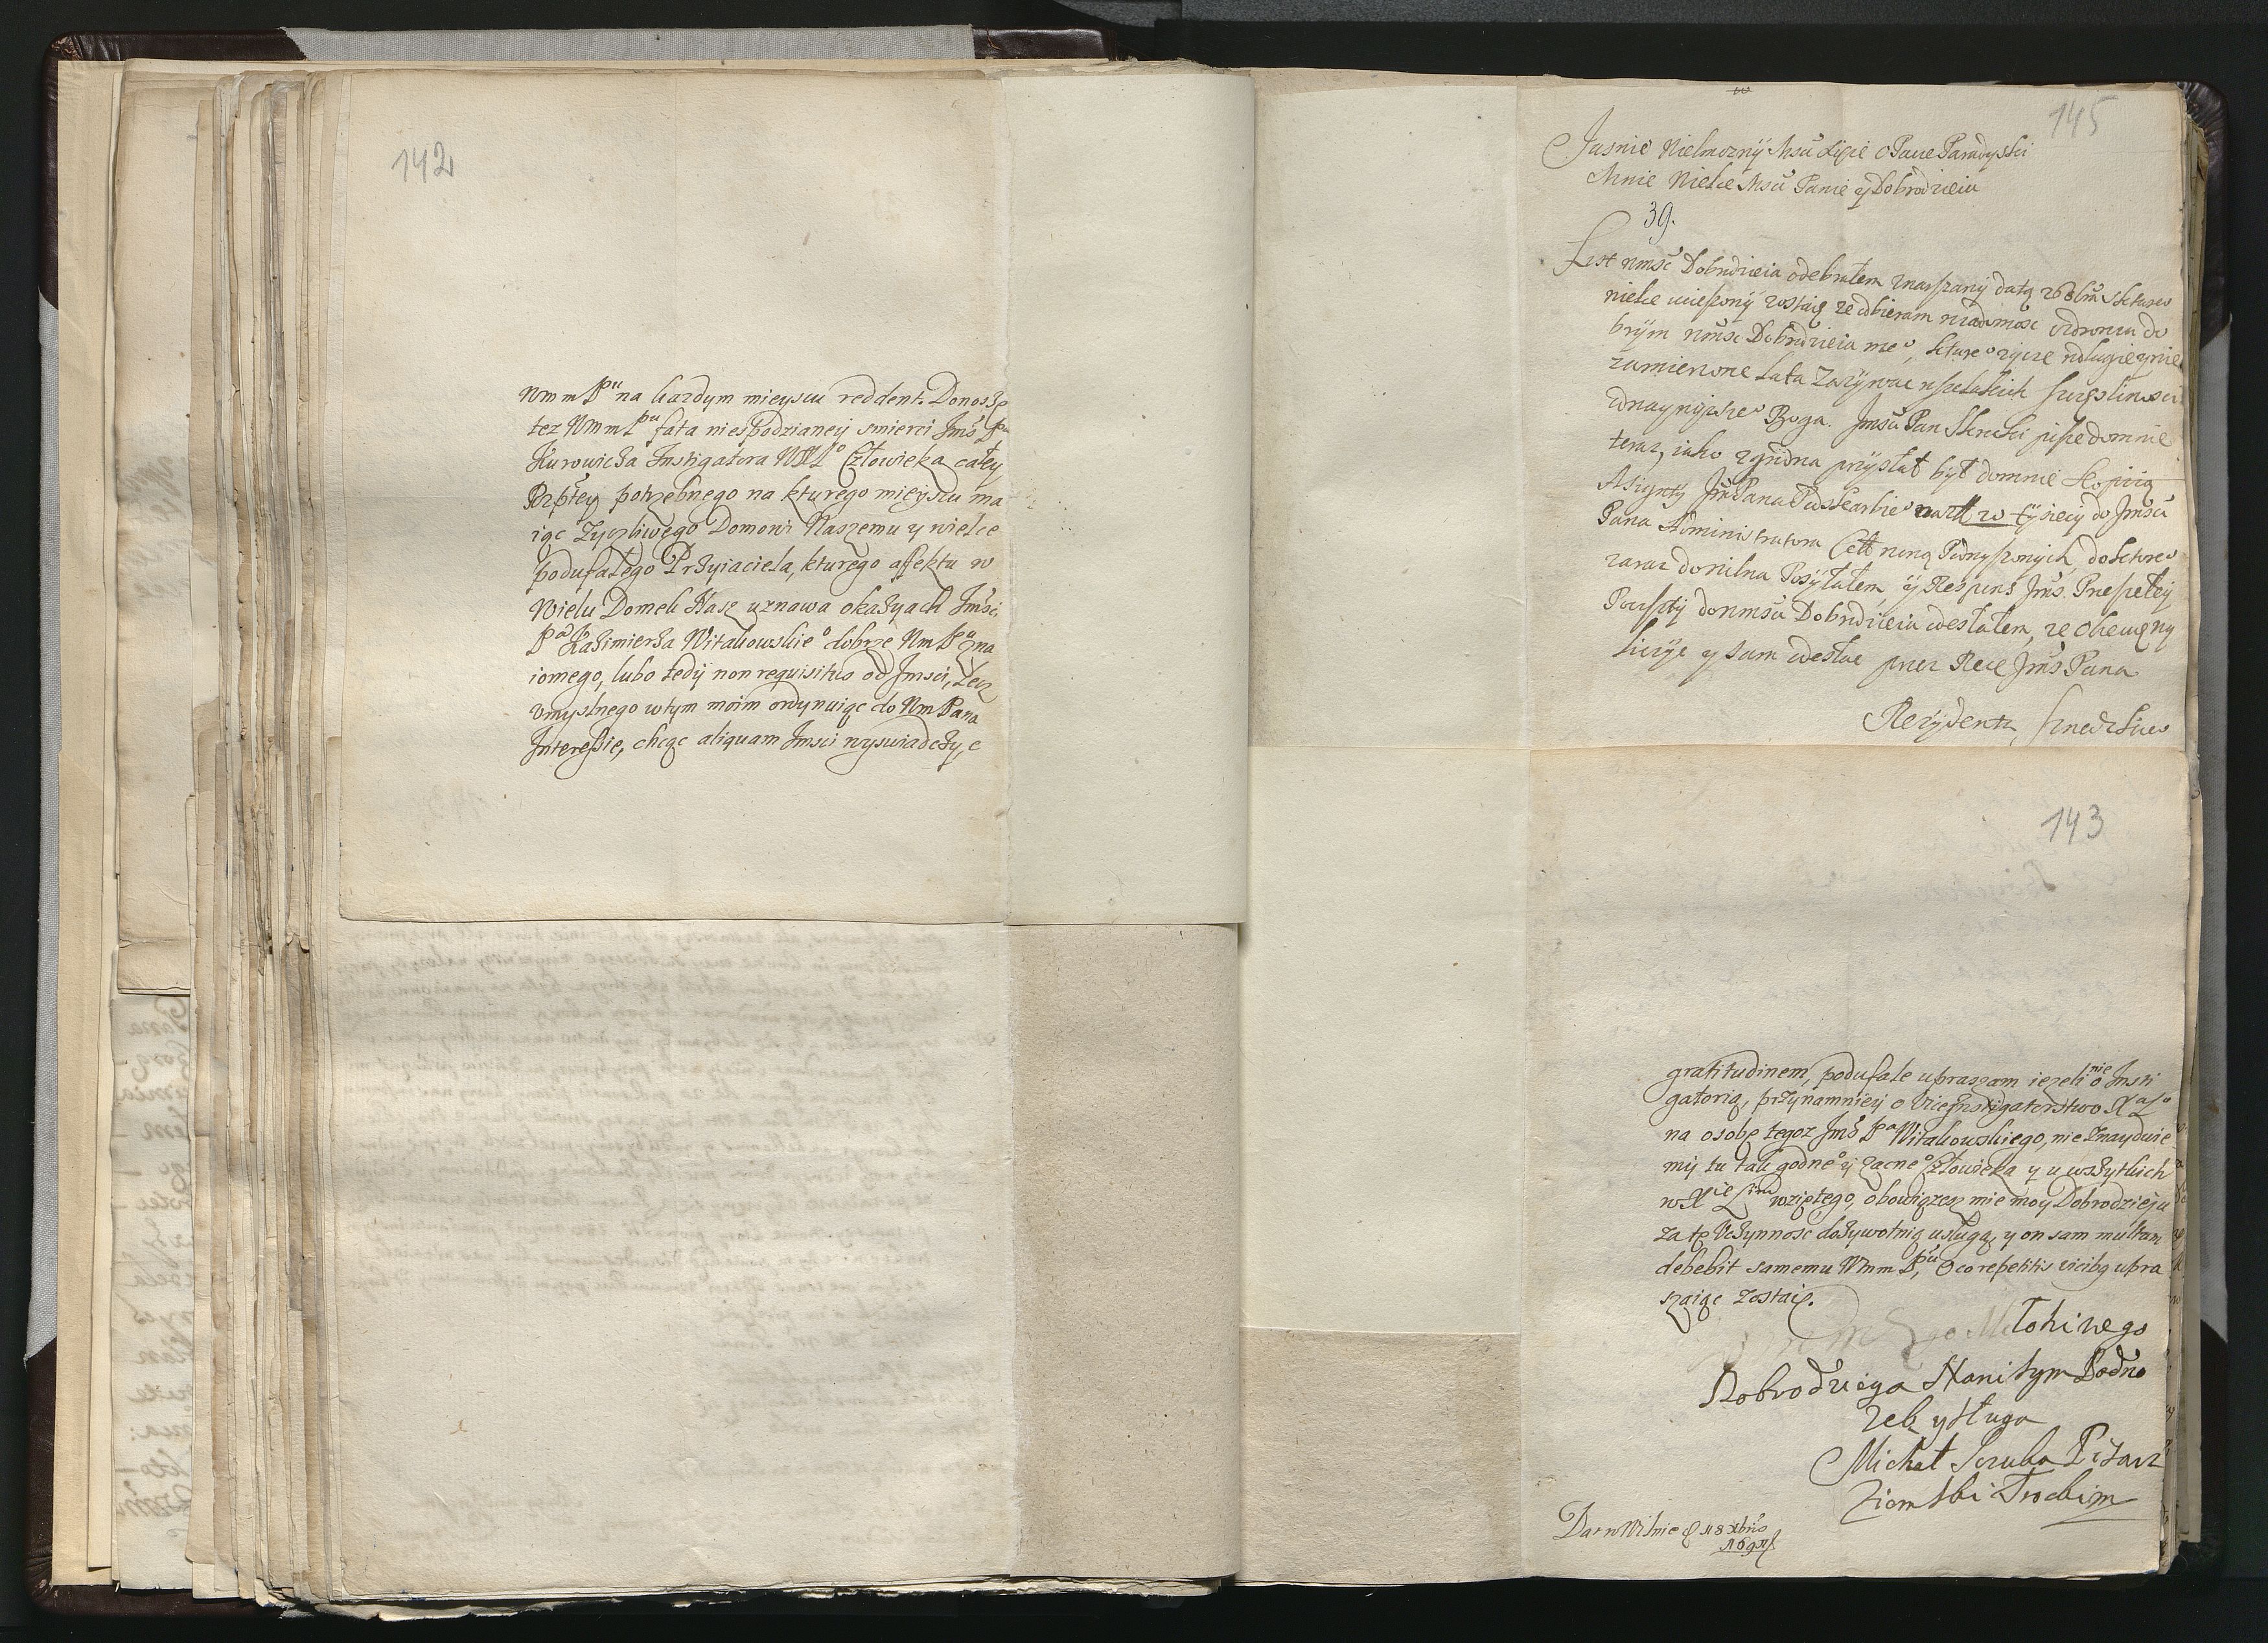 142
WmmPu na każdym mieyscu reddent. Donoszę
też WmmPu fata niespodzianey smierci Jmś Pa
Kurowicza Instigatora WXL° Człowieka całey
Rzptey potrzebnego na kturego mieyscu ma
iąc Zyczliwego Domowi Naszemu y wielce
podufałego Przyiaciela, kturego affektu w
Wielu Domek Nasz uznawa okazyach Jmści
Pa Kazimierza Witakowskie° dobrze WmPu zna
iomego, lubo tedy non requisitus od Jmsci, Lecz
Vmyslnego wtym moim ordynuiąc do WmPana
Interessie, chcąc aliquam Jmsci wyswiadczyc
145
Jasnie Wielmozny Mscu Xięże Opacie Paradyski
Mnie Wielce Mscu Panie y Dobrodzieiu
39.
List wmsc Dobrodzieia odebrałem
wielce ucieszony zostaię ze odbieram wiadomosc ozdrowiu do
brym wmsc Dobrodzieia me°, kture° zycze wdługie y nie
zamierzone Lata Zazywac wszelakich szczęsliwosci
odnaywyzsze° Boga. Jmscu Pan pisze domnie
teraz, iako zgrodna przysłał był domnie kopią
Asignaty Jm Pana Podskarbie° tysięcy do Jmscu
Pana Administratora Cełł Podwyszonych, do kture°
zaraz doWilna Posyłałem, y Respons Jmś. Przeszłey
Poczty do wmscu Dobrodzieia odesłałem,
y sam odesłac przez Ręce Jmś Pana
Rezydenta Szwedzkie°
143
gratitudinem, podufale upraszam iezeli nie o Insti
gatorią, przynamniey o Viceinstigatorstwo Xa L°
na osobę tegoz Jmś Pa Witakowskiego, nie Znayduie
my tu tak godne° y zacne° Człowieka y u wszytkich
w Xie Lim wziętego, obowiązesz mie moy Dobrodzieju
za tę Vczynnosc dozywotnią usługą, y on sam multum
debebit samemu WmmPu, O co repetitis vicibq upra
szaiąc zostaię.
Młohiwego
Dobrodzieja Nanisym Podno
zek y sługa
Michał Scruba Pisarz
Ziemski Trocki m
Dat w Wilnie d 18 xbris